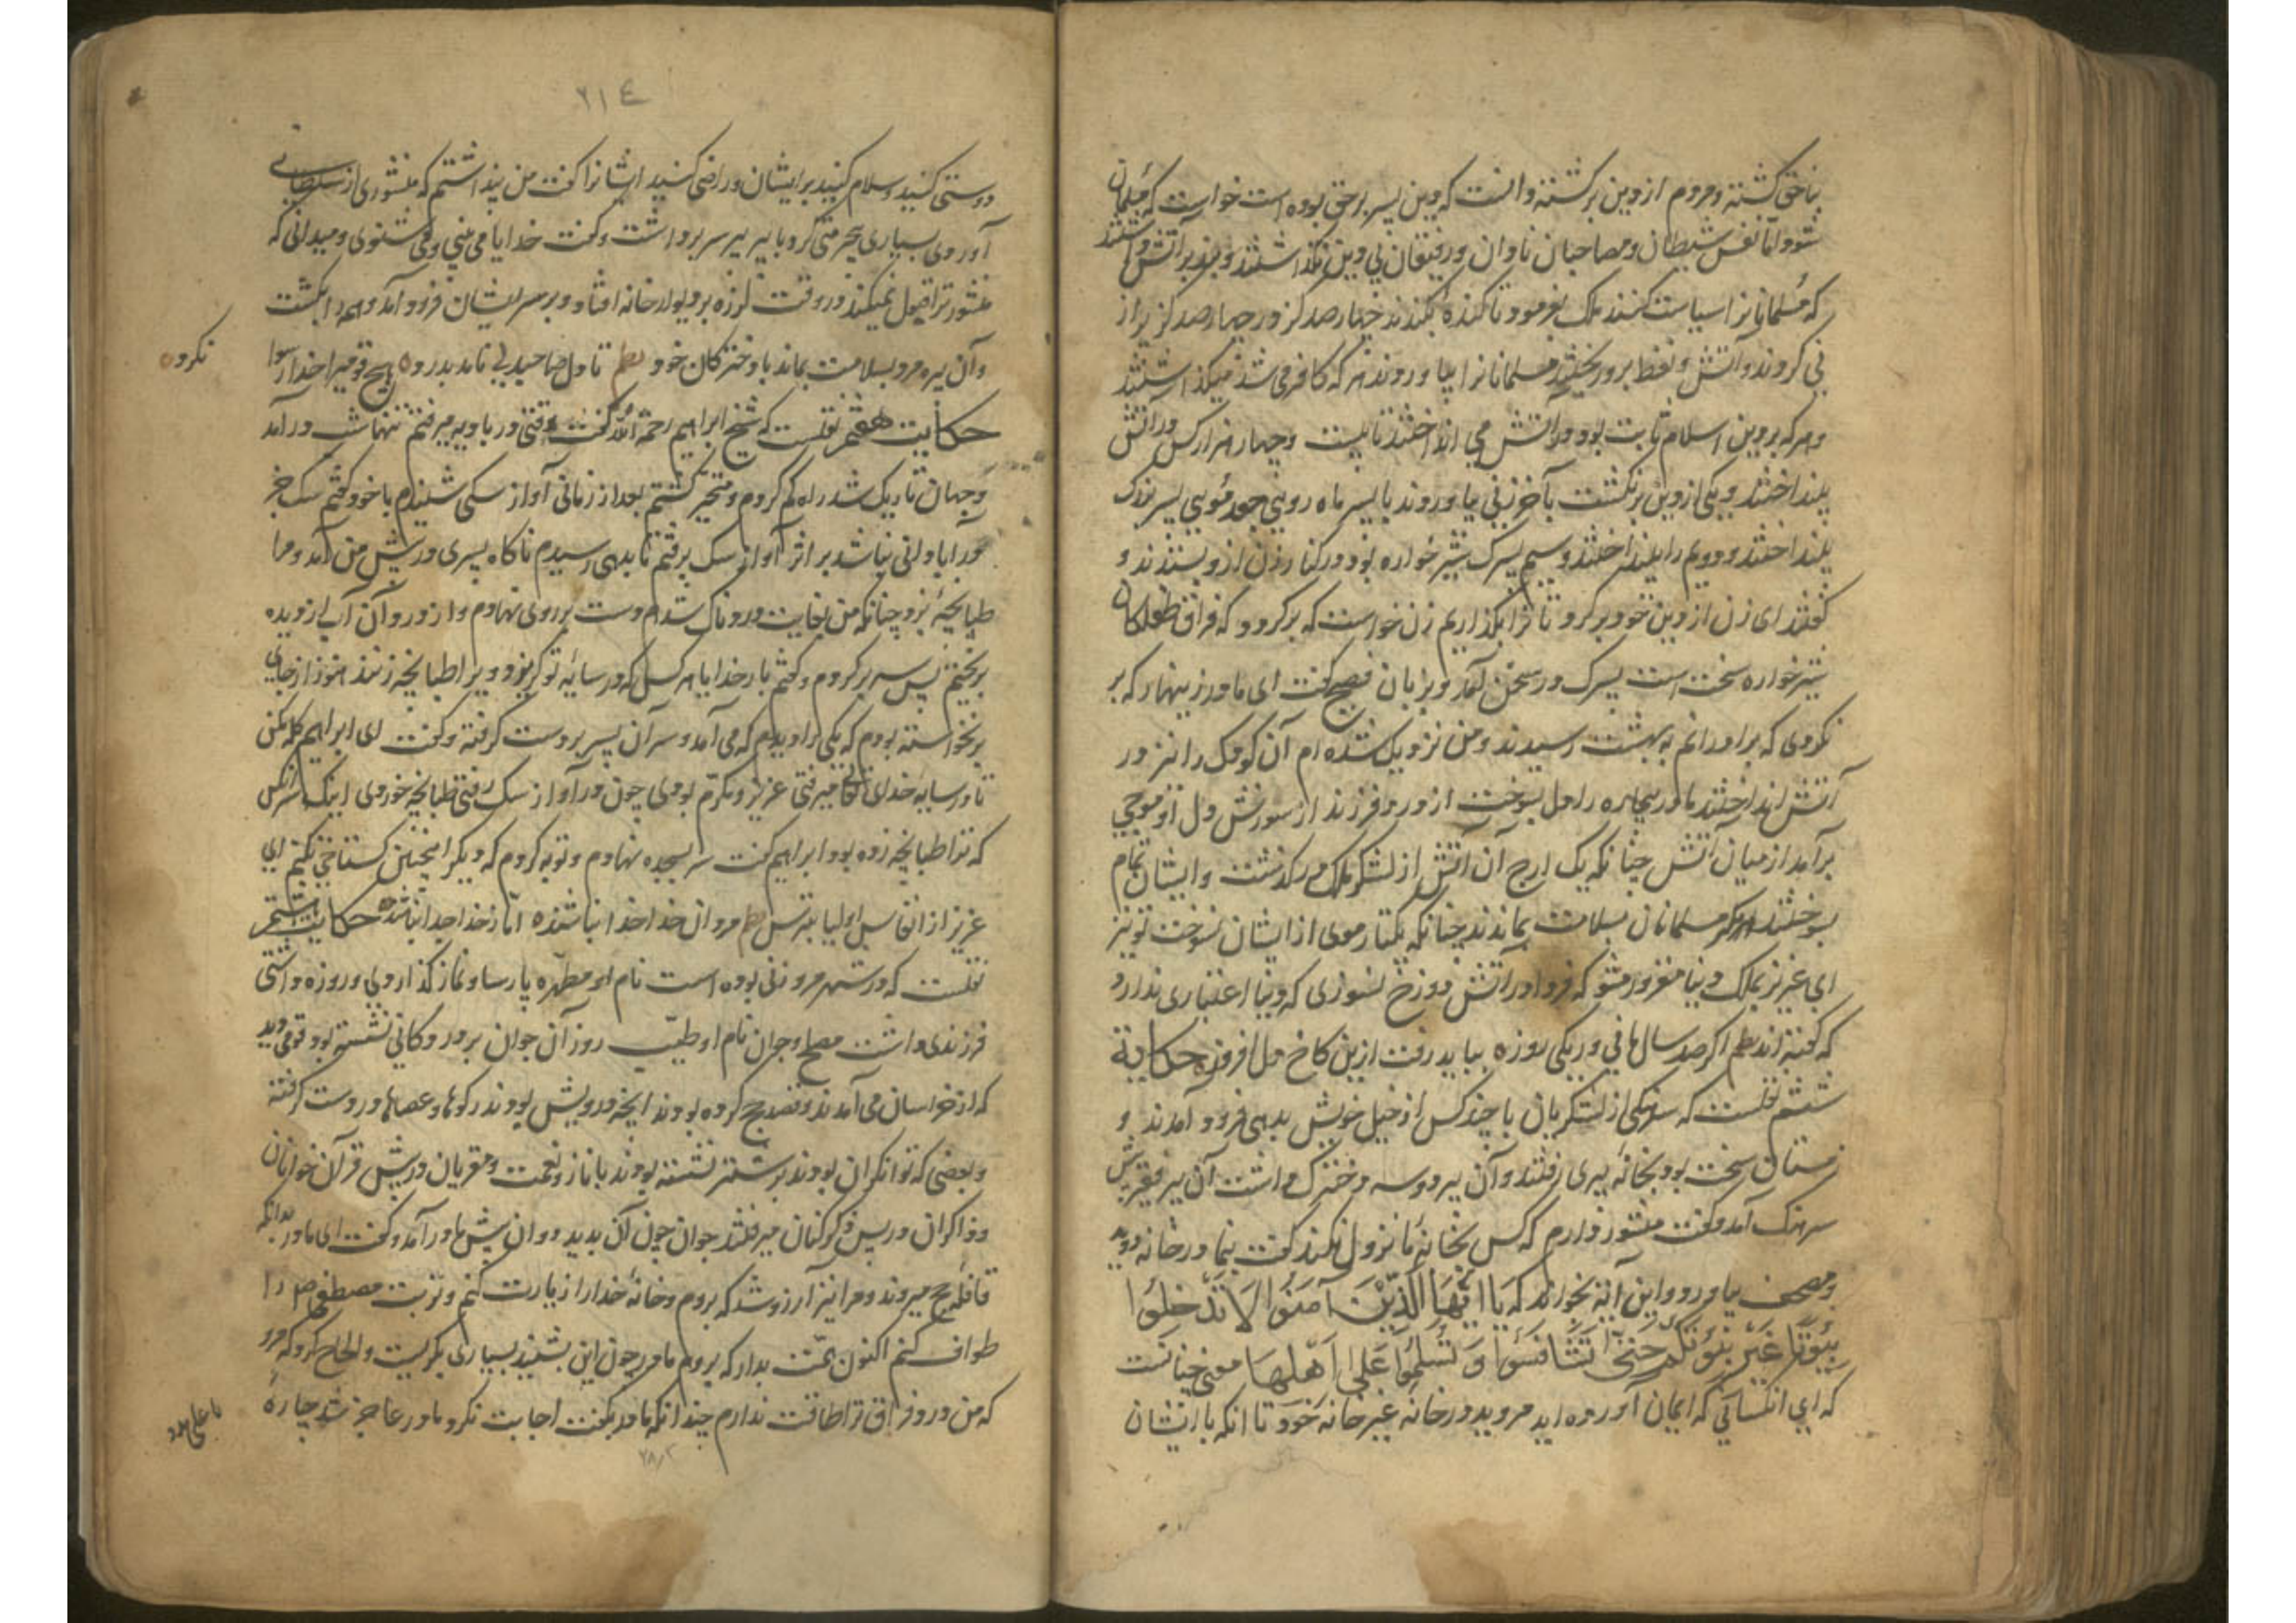 بناحق کشته و مردم از دین برگشته دانست که دین پسر بر حق بوده است خواست که مسلمان
شود اما نفس شیطان و مصاحبان نادان و رفیقان بی دین نگذاشتند و نیز بر آتش داشتند
که مسلمانانرا سیاست کنند ملک بفرمود تا کنده بکندند چهار صد گز در چهار صد گز پر از
نی کردند و آتش و نفط برو ریختند مسلمانانرا بیاوردند هر که کافر می شد میگذاشتند
و هر که بر دین اسلام ثابت بود در آتش می انداختند تا بیست و چهار هزار کس در آتش
بینداختند و یکی از دین برنگشت بآخر زنی بیاوردند با پسر ماه رویی جعد مویی پسر بزرگ
بینداختند و دویم را بینداختند و سیم پسرک شیر خواره بود در کنار زن ازو بستدند و
گفتند ای زن از دین خود برگرد تا ترا بگذاریم زن خواست که برگردد که فراق طفلکان
شیر خواره سخت است پسرک در سخن آمد و بزبان فصیح گفت ای مادر زینهار که بر
نگردی که برادرانم به بهشت رسیدند و من نزدیک شده ام آن کودک را نیز در
آتش انداختند مادر بیچاره را دل بسوخت از درد فرزند از سوزش دل او موجی
برآمد از میان آتش چنانکه یک ارج آن آتش از لشکر ملک در گذشت و ایشان تمام
بسوختند مسلمانان بسلامت بماندند چنانکه یکتار موی از ایشان نسوخت تو نیز
ای عزیز بملک دنیا مغرور مشو که فردا در آتش دوزخ نسوزی که دنیا اعتباری ندارد
که گفته اند نظم اگر صد سال مانی ور یکی روزه بباید رفت ازین کاخ دل افروزه حکایة
ششم نقلست که سرهنگی از لشکریان با چند کس از خیل خویش بدیهی فرود آمدند و
زمستان سخت بود بخانه پیری رفتند و آن پیر دو سه دخترک داشت آن پیر فقیر پیش
سرهنک آمد و گفت منشور دارم که کس بخانه ما نزول نکند گفت بنما در خانه دوید
و مصحف بیاورد و این آیه بخواند که یَا اَیُّهَا الَّذِیْنَ آمَنُوا لَا تَدْخِلُوْا
بُیُوْتًا غَیْرَ بُیُوْتِکُمْ حَتّٰی تَسْتَانِسُوْا وَ تُسَلِّمُوْا عَلٰی اَهْلِهَا معنی چنانست
که ای انکسانی که ایمان آورده اید مروید در خانه غیر خانه خود تا انکه با ایشان
۲۱۴
دوستی کنید و سلام کنید بر ایشان و راضی کنید ایشانرا گفت من پنداشتم که منشوری از سلطانی
آوردی بسیاری بیحرمتی کرد با پیر پیر سر برداشت و گفت خدایا می بینی و می شنوی و میدانی که
منشور ترا قبول نمیکند در وقت لرزه بر دیوار خانه افتاد و بر سر ایشان فرود آمد و همه را بکشت
و آن پیره مرد بسلامت بماند با دخترکان خود نظم تا دل صاحبدلی نامد بدرد ه هیچ قومیرا خدا رسوا
نکرد
حکایت هفتم نقلست که شیخ ابراهیم رحمة الله گفت وقتی در بادیه میرفتم تنها شب درآمد
و جهان تاریک شد راه گم کردم و متحیر گشتم بعد از زمانی آواز سکی شنیدم با خود گفتم سک جز
در آبادانی نباشد بر اثر آواز سک برفتم تا بدیهی رسیدم ناگاه پسری در پیش من آمد و مرا
طپانچهٔ بزد چنانکه من بغایت دردناک شدم دست بر روی نهادم و از درد آن آب از دیده
بریختم پس سر بر کردم و گفتم بار خدایا هر کس که در سایه تو گریزد ویرا طپانچه زنند هنوز از جای
برنخواسته بودم که یکی را دیدم که می آمد و سر آن پسر بر دست گرفته و گفت ای ابراهیم گله مکن
تا در سایه خدای تعالی میرفتی عزیز و مکرم بودی چون در آواز سک رفتی طپانچه خوردی اینک سر آنکس
که ترا طپانچه زده بود ابراهیم گفت سر بسجده نهادم و توبه کردم که دیگر اینچنین گستاخی نکنم ای
عزیز از انفاس اولیا بترس نظم مردان خدا خدا نباشنده اما ز خدا جدا نباشنده حکایت هشتم
نقلست که در شهر مرو زنی بوده است نام او مطهره پارسا و نماز گذار و روزه داشتی
فرزندی داشت مصلح و جوان نام او طیب روز آن جوان بر در دکانی نشسته بود قومی دید
که از خراسان می آمدند و قصد حج کرده بودند آنچه درویش بودند رکوها و عصاها در دست گرفته
و بعضی که توانگران بودند بر شتر نشسته بودند با ناز و نعمت و مقریان در پیش قرآن خوانان
و ذاکران در پس ذکر کنان میرفتند جوان چون آن بدید دوان پیش مادر آمد و گفت ای مادر بدانکه
قافله حج میروند و مرا نیز آرزو شد که بروم و خانه خدا را زیارت کنم و تربت مصطفی ص را
طواف کنم اکنون همت بدار که بروم مادر چون این بشنید بسیاری بگریست و الحاح کرد که مرو
که من درد فراق ترا طاقت ندارم چندانکه مادر بگفت اجابت نکرد مادر عاجز شد چارهٔ
یا علی مدد